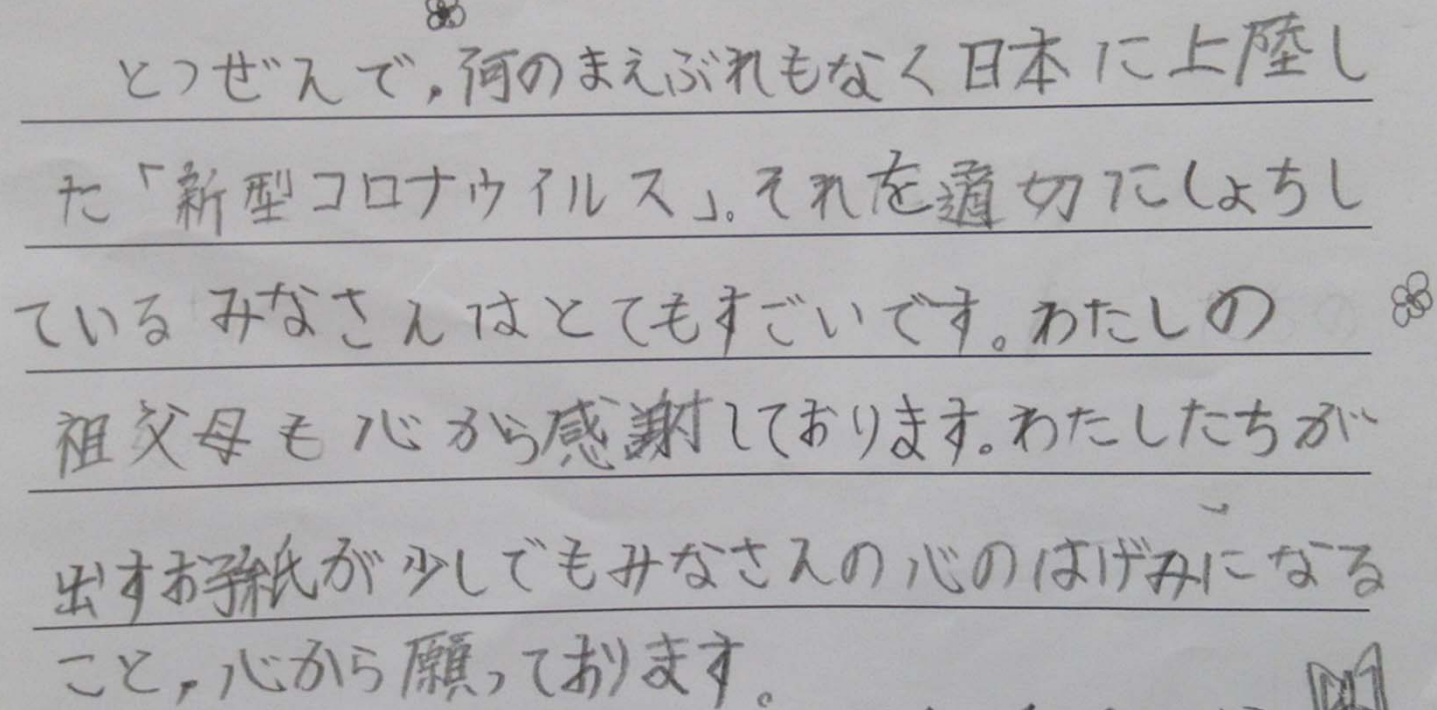 とつぜんで,何のまえぶれもなく日本に上陸し
た「新型コロナウイルス」。それを適切にしょちし
ているみなさんはとてもすごいです。わたしの
祖父母も心から感謝しております。わたしたちが
出すお手紙が少しでもみなさんの心のはげみになる
こと,心から願っております。